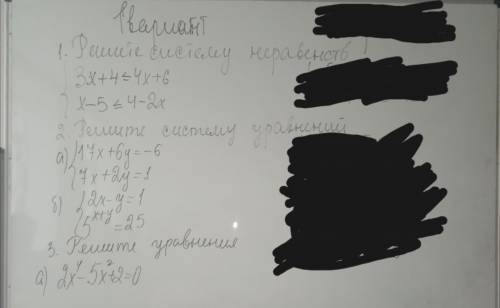 1 вариант
1. Решите систему неравенств
{3x+4≤4x+6
x-5≤4-2x
2. Решите систему уравнений
а) {17x+6y=-6
7x+2y=1
б) {2x-y=1
5^{x+y}=25
3. Решите уравнения
а) 2x⁴-5x²+2=0